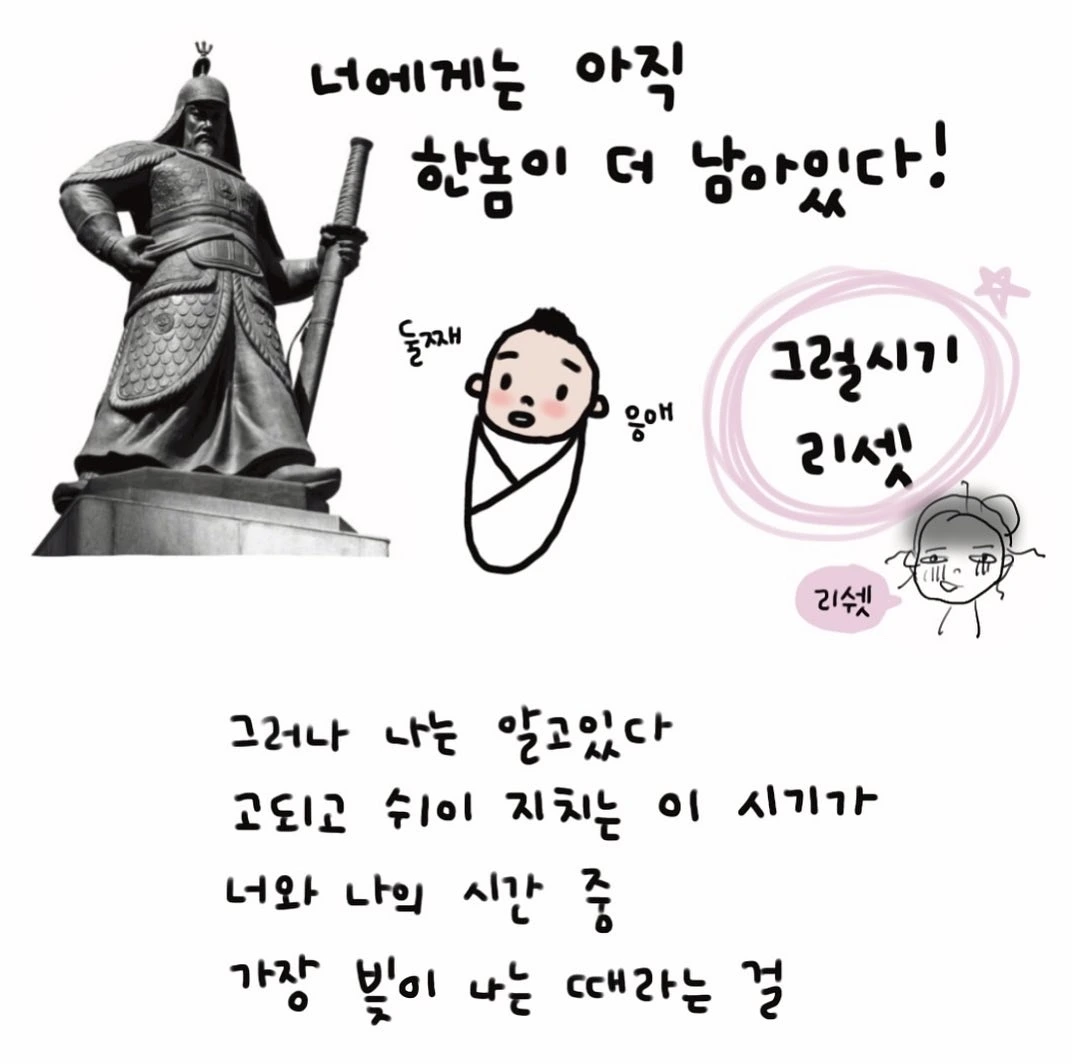 너에게는 아직
한놈이 더 남아있다!
둘째
응애
그럴시기
리셋
리쉣
그러나 나는 알고있다
고되고 쉬이 지치는 이 시기가
너와 나의 시간 중
가장 빛이 나는 때라는 걸